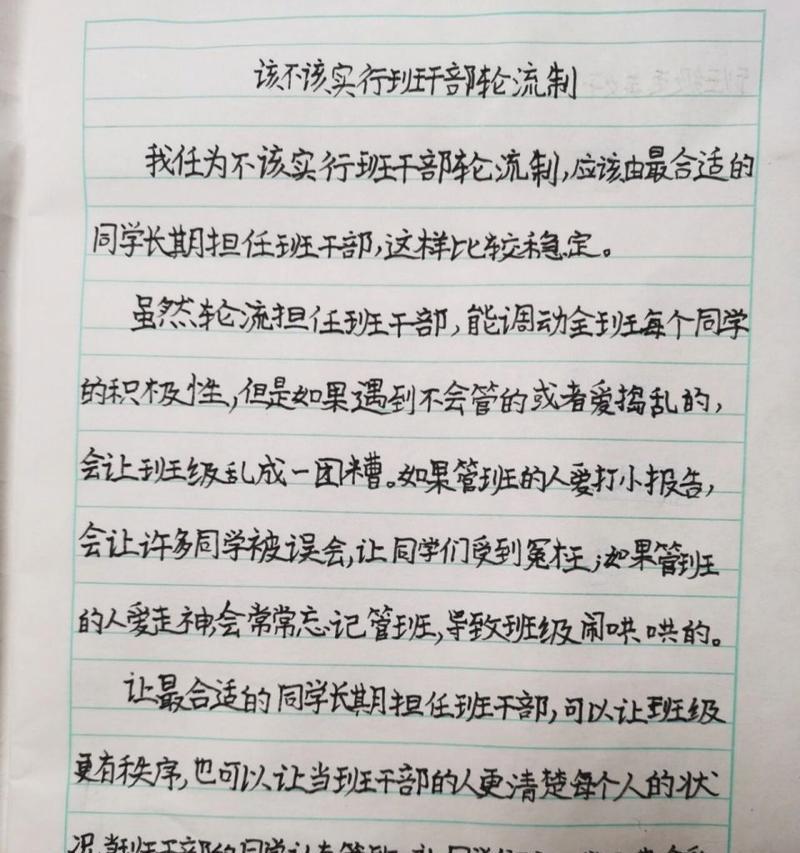 该不该实行班干部轮流制
我任为不该实行班干部轮流制,应该由最合适的
同学长期担任班干部,这样比较稳定。
虽然轮流担任班干部,能调动全班每个同学
的积极性,但是如果遇到不会管的或者爱捣乱的,
会让班级乱成一团糟。如果管班的人爱打小报告,
会让许多同学被误会,让同学们受到冤枉;如果管班
的人爱走神,会常常忘记管班,导致班级闹哄哄的。
让最合适的同学长期担任班干部,可以让班级
更有秩序,也可以让当班干部的人更清楚每个人的状
况,当班干部的同学认真管班